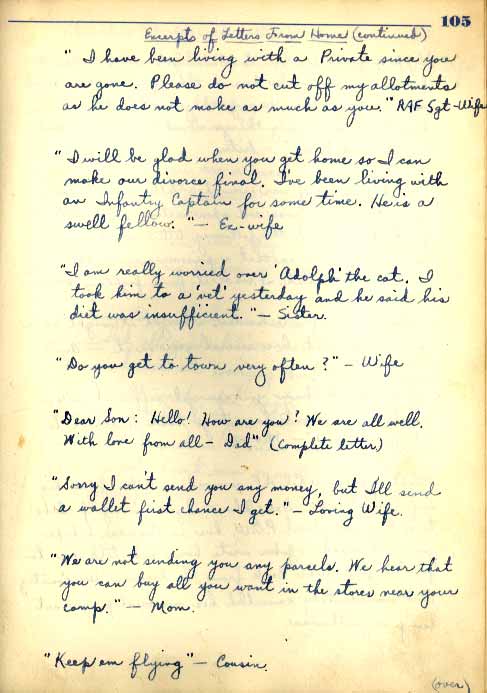 105
Excerpts of Letters From Home (continued)
" I have been living with a Private since you
are gone. Please do not cut off my allotments
as he does not make as much as you." RAF Sgt-Wife
"I will be glad when you get home so I can
make our divorce final. I've been living with
an Infantry Captain for some time. He is a
swell fellow. "— Ex-wife
"I am really worried over 'Adolph' the cat. I
took him to a 'vet' yesterday and he said his
diet was insufficient. "— Sister.
"Do you get to town very often?" — Wife
"Dear Son: Hello! How are you? We are all well.
With love from all — Dad" (Complete letter)
"Sorry I can't send you any money, but I'll send
a wallet first chance I get." — Loving Wife.
"We are not sending you any parcels. We hear that
you can buy all you want in the stores near your
camp." — Mom.
"Keep em flying" — Cousin.
(over)